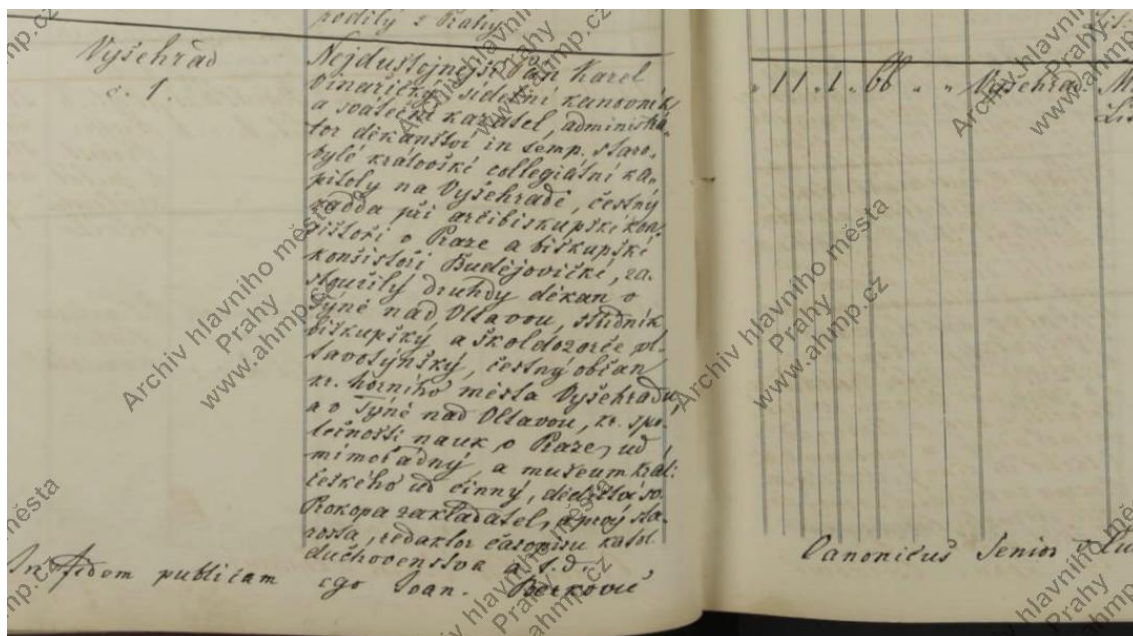 rodilý z Prahy
Vyšehrad
č. 1
Nejdůstojnější Pan Karel
Vinařický, sídelní kanovník
a sváteční kazatel, administrá-
tor děkanství in temp. staro-
bylé královské collegiátní ka-
pitoly na Vyšehradě, čestný
radda při arcibiskupské kon-
sistoři v Praze a biskupské
konsistoři Budějovické, za-
sloužilý druhdy děkan v
Týně nad Vltavou, vikárník
biskupský a školdozorce vl-
tavotýnský, čestný občan
kr. horního města Vyšehradu,
a v Týně nad Vltavou, kr. spo-
lečnosti nauk v Praze, úd
mimořádný, a museum král.
českého úd činný, dědictví sv.
Prokopa zakladatel, a prvý sta-
rosta, redaktor časopisu katol
duchovenstva a t. d.
In fidem publicam ego Joan.
11 1 66 " " Vyšehrad
Canonicus Senior
Archiv hlavního města
Prahy
www.ahmp.cz